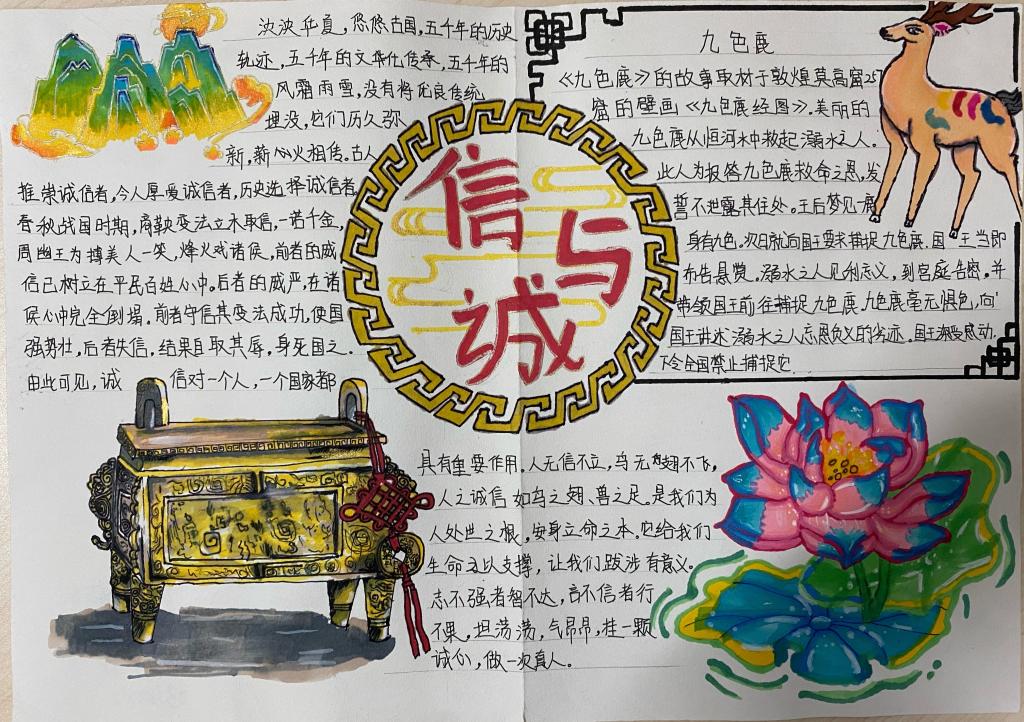 泱泱华夏,悠悠古国,五千年的历史
轨迹,五千年的文化传承,五千年的
风霜雨雪,没有将优良传统
埋没,它们历久弥
新,薪火相传。古人
推崇诚信者,今人厚爱诚信者,历史选择诚信者
春秋战国时期,商鞅变法立木取信,一诺千金,
周幽王为搏美人一笑,烽火戏诸侯,前者的威
信已树立在平民百姓心中。后者的威严,在诸
侯心中完全倒塌。前者守信其变法成功,使国
强势壮,后者失信,结果自取其辱,身死国之.
由此可见,诚 信对一个人,一个国家都
具有重要作用。人无信不立,鸟无翅不飞,
人之诚信如鸟之翅、兽之足。是我们为
人处世之根,安身立命之本。它给我们
生命予以支撑,让我们跋涉有意义。
志不强者智不达,言不信者行
不果,坦荡荡,气昂昂,挂一颗
诚心,做一次真人。
信与诚
九色鹿
《九色鹿》的故事取材于敦煌莫高窟257
窟的壁画《九色鹿经图》。美丽的
九色鹿从恒河水中救起溺水之人.
此人为报答九色鹿救命之恩,发
誓不泄露其住处。王后梦见一鹿
身有九色,次日就向国王要求捕捉九色鹿。国王当即
布告悬赏。溺水之人见利忘义,到宫庭告密。并
带领国王前往捕捉九色鹿。九色鹿毫无惧色,向
国王讲述溺水之人忘恩负义的劣迹。国王深受感动,
下令全国禁止捕捉它